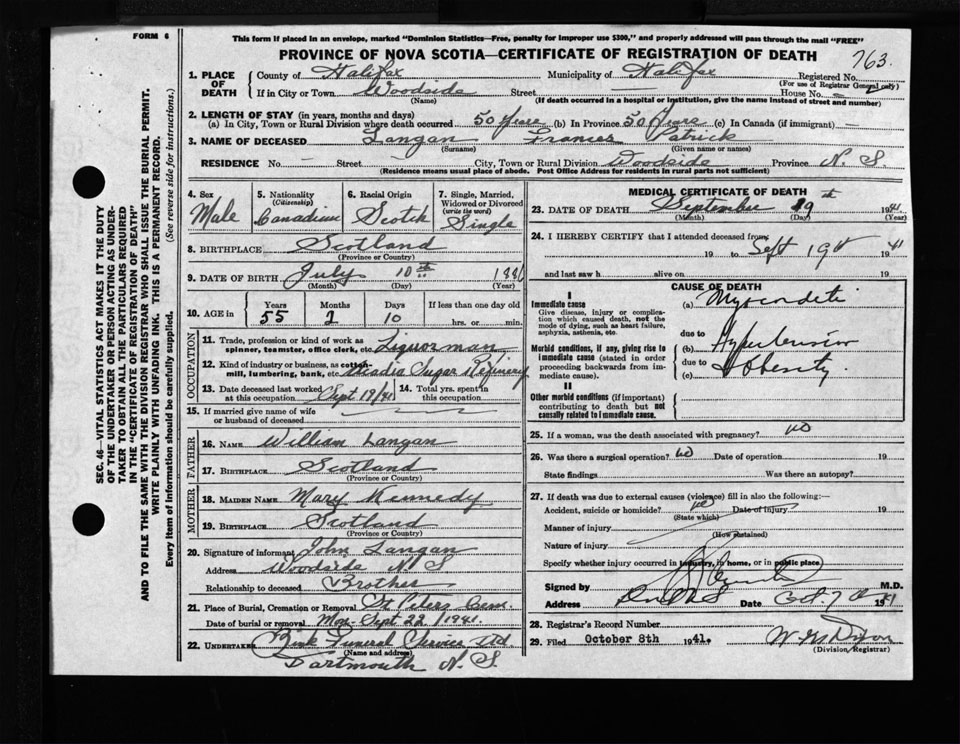 FORM 6
This form if placed in an envelope, marked "Dominion Statistics—Free, penalty for improper use $300," and properly addressed will pass through the mail "FREE"
PROVINCE OF NOVA SCOTIA—CERTIFICATE OF REGISTRATION OF DEATH
763
1. PLACE OF DEATH
County of Halifax Municipality of Halifax Registered No.
(For use of Registrar General only)
If in City or Town Woodside Street — House No. —
(Name) (If death occurred in a hospital or institution, give the name instead of street and number)
2. LENGTH OF STAY (in years, months and days)
(a) In City, Town or Rural Division where death occurred 50 Years (b) In Province 50 Years (c) In Canada (if immigrant) —
3. NAME OF DECEASED Langan Frances Patrick
(Surname) (Given name or names)
RESIDENCE No. — Street — City, Town or Rural Division Woodside Province N. S.
(Residence means usual place of abode. Post Office Address for residents in rural parts not sufficient)
4. Sex
Male
5. Nationality
(Citizenship)
Canadian
6. Racial Origin
Scotch
7. Single, Married, Widowed or Divorced
(write the word)
Single
8. BIRTHPLACE Scotland
(Province or Country)
9. DATE OF BIRTH July 10th
(Month) (Day) (Year)
10. AGE in Years Months Days If less than one day old
55 2 10 hrs. or min.
OCCUPATION
11. Trade, profession or kind of work as spinner, teamster, office clerk, etc. Liquorman
12. Kind of industry or business, as cotton-mill, lumbering, bank, etc. Acadia Sugar Refinery
13. Date deceased last worked at this occupation Sept 19/41
14. Total yrs. spent in this occupation
15. If married give name of wife or husband of deceased
FATHER
16. NAME William Langan
17. BIRTHPLACE Scotland
(Province or Country)
MOTHER
18. MAIDEN NAME Mary Kennedy
19. BIRTHPLACE Scotland
(Province or Country)
20. Signature of informant John Langan
Address Woodside N S
Relationship to deceased Brother
21. Place of Burial, Cremation or Removal St Peters Cem
Date of burial or removal Mon. Sept 22/1941.
22. UNDERTAKER Funeral Service Ltd.
(Name and address)
Dartmouth N. S.
MEDICAL CERTIFICATE OF DEATH
23. DATE OF DEATH September 19th 1941
(Month) (Day) (Year)
24. I HEREBY CERTIFY that I attended deceased from:
19 to Sept 19th 41
and last saw h alive on 19
CAUSE OF DEATH
I
Immediate cause
Give disease, injury or complication which caused death, not the mode of dying, such as heart failure, asphyxia, asthenia, etc.
(a)
due to
Morbid conditions, if any, giving rise to immediate cause (stated in order proceeding backwards from immediate cause).
(b) Hypertension
due to
(c) Obesity
II
Other morbid conditions (if important) contributing to death but not causally related to immediate cause.
25. If a woman, was the death associated with pregnancy? no
26. Was there a surgical operation? no Date of operation 19
State findings Was there an autopsy?
27. If death was due to external causes (violence) fill in also the following:—
Accident, suicide or homicide? no Date of injury 19
(State which)
Manner of injury
(How sustained)
Nature of injury
Specify whether injury occurred in industry, in home, or in public place
Signed by M.D.
Address Date Oct 7th 1941
28. Registrar's Record Number
29. Filed October 8th 1941.
(Division Registrar)
SEC. 46—VITAL STATISTICS ACT MAKES IT THE DUTY
OF THE UNDERTAKER OR PERSON ACTING AS UNDER-
TAKER TO OBTAIN ALL THE PARTICULARS REQUIRED
IN THE "CERTIFICATE OF REGISTRATION OF DEATH"
AND TO FILE THE SAME WITH THE DIVISION REGISTRAR WHO SHALL ISSUE THE BURIAL PERMIT.
WRITE PLAINLY WITH UNFADING INK. THIS IS A PERMANENT RECORD.
Every item of information should be carefully supplied. (See reverse side for instructions.)